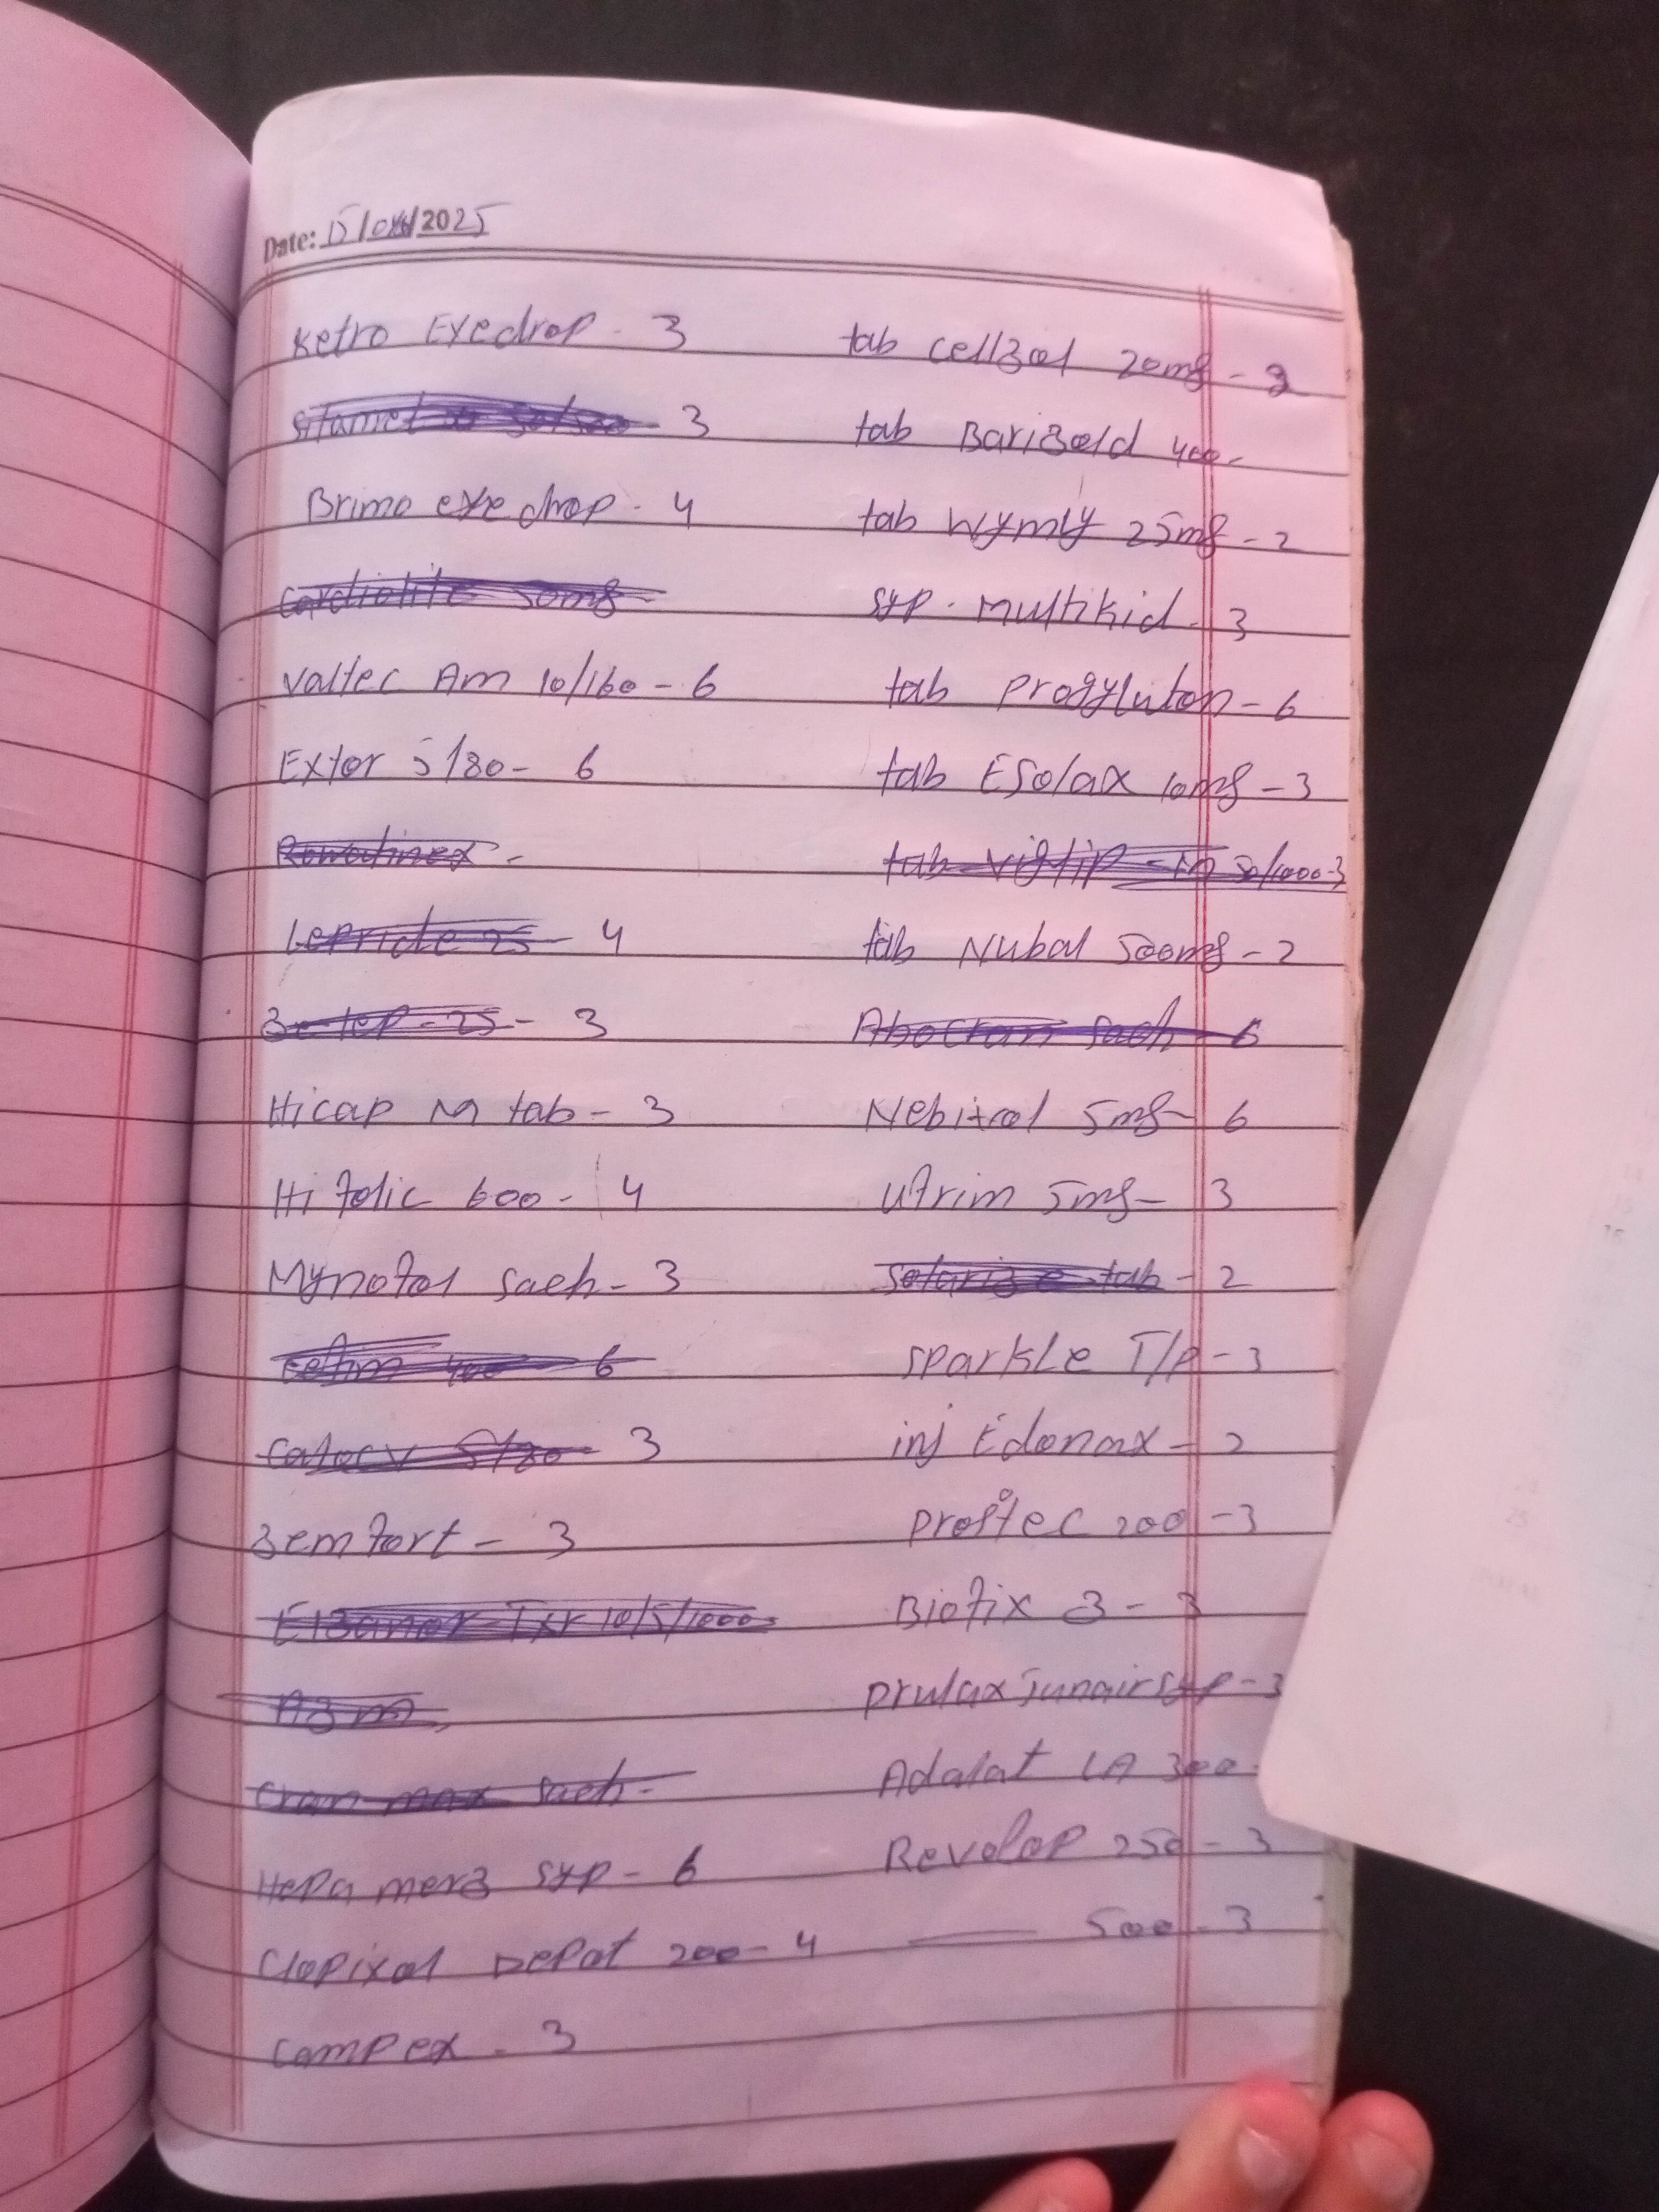 Date: 15/04/2025
Ketro Eyedrop - 3
sitamet 50/500 - 3
Brimo eye drop - 4
Cardiolite 50mg -
Valtec Am 10/160 - 6
Extor 5/80 - 6
Rowatinex -
Lepride 25 - 4
3
Hicap M tab - 3
Hi folic 600 - 4
Mynofol sach - 3
400 - 6
5/80 - 3
Zemfort - 3
10/5/1000
Cran max sach -
Hepa merz syp - 6
Clopixol Depot 200 - 4
Compex - 3
tab cellzol 20mg -
tab Barizold 400 -
tab Wymly 25mg - 2
syp. multikid - 3
tab progyluton - 6
tab Esolax 10mg - 3
tab viglip - m 50/1000 - 3
tab Nubal 500mg - 2
Abocran sach - 6
Nebitrol 5mg - 6
Ufrim 5mg - 3
Solarize tab - 2
sparkle T/p - 3
inj Edonax - 2
200 - 3
Biofix 3 - 3
prulax junair syp - 3
Adalat LA 300 -
Revolop 250 - 3
—— 500 - 3